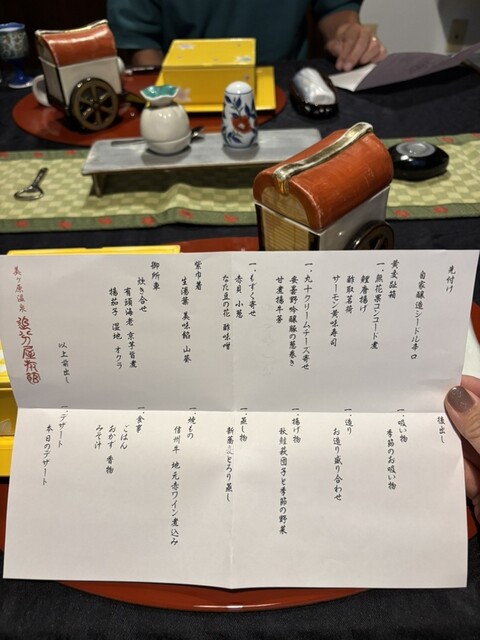 先付け
自家醸造シードル辛口
黄麦耻箱
一、無花果コンコート煮
鯉唐揚げ
酢取茗荷
サーモン黄味寿司
一、九十クリームチーズ寄せ
安曇野吟醸豚の葱巻き
甘煮揚牛蒡
一、もずく寄せ
赤貝 小葱
なた豆の花 酢味噌
紫巾着
生湯葉 美味餡 山葵
御所車
炊き合せ
有頭海老 京芋旨煮
揚茄子 湿地 オクラ
以上前出し
美ヶ原温泉
追分屋旅館
後出し
一、吸い物
季節のお吸い物
一、造り
お造り盛り合わせ
一、揚げ物
秋鮭萩団子と季節の野菜
一、蒸し物
新蕎麦とろり蒸し
一、焼もの
信州牛 地元赤ワイン煮込み
一、食事
ごはん
おかず 香物
みそ汁
一、デザート
本日のデザート